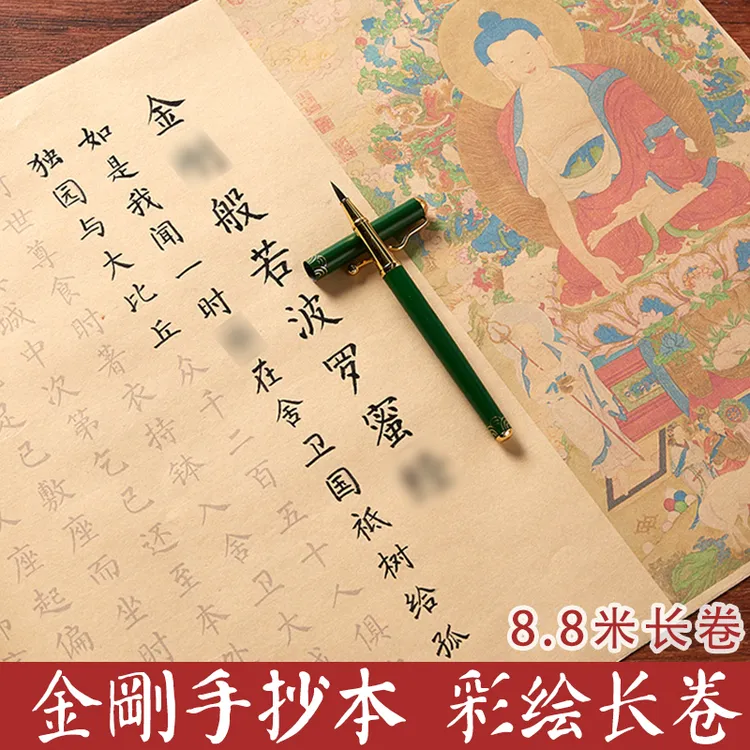 金 般若波罗蜜
如是我闻一时 在舍卫国祇树给孤
独园与大比丘众千二百五十人俱
世尊食时著衣持钵入舍卫大
城中次第乞已还至本处
足已敷座而坐时
座起偏
8.8米长卷
金剛手抄本 彩绘长卷